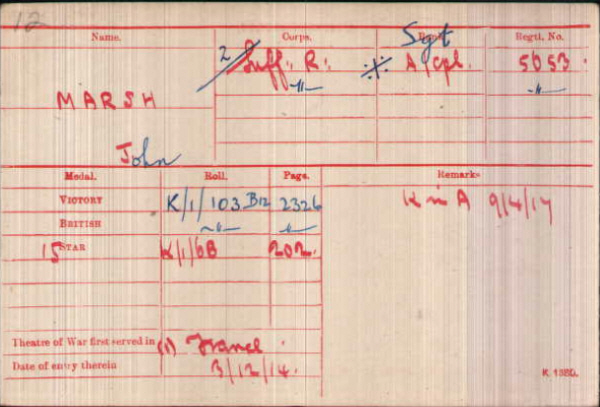 12
Name. Corps. Rank. Regtl. No.
Sgt
2/ Suff: R: ※ A/Cpl. 5653.
-"- -"-
MARSH
John
Medal. Roll. Page. Remarks
VICTORY K/1/103 B12 2326 K in A 9/4/17
BRITISH -"- -"-
15 STAR K/1/6B 202.
Theatre of War first served in (1) France.
Date of entry therein 3/12/14.
K 1380.